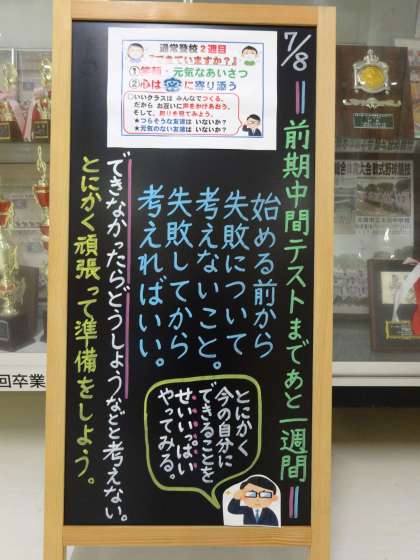 7/8
通常登校2週目
『できていますか?』
①笑顔・元気なあいさつ
②心は密に寄り添う
○いいクラスは みんなでつくる。
だから お互いに声をかけあおう。
そして、周りを見てみよう。
★つらそうな友達は いないか?
★元気のない友達は いないか?
前期中間テストまであと一週間
始める前から
失敗について
考えないこと。
失敗してから
考えればいい。
できなかったらどうしようなどと考えない。
とにかく頑張って準備をしよう。
とにかく
今の自分に
できることを
せいいっぱい
やってみる。
回卒業